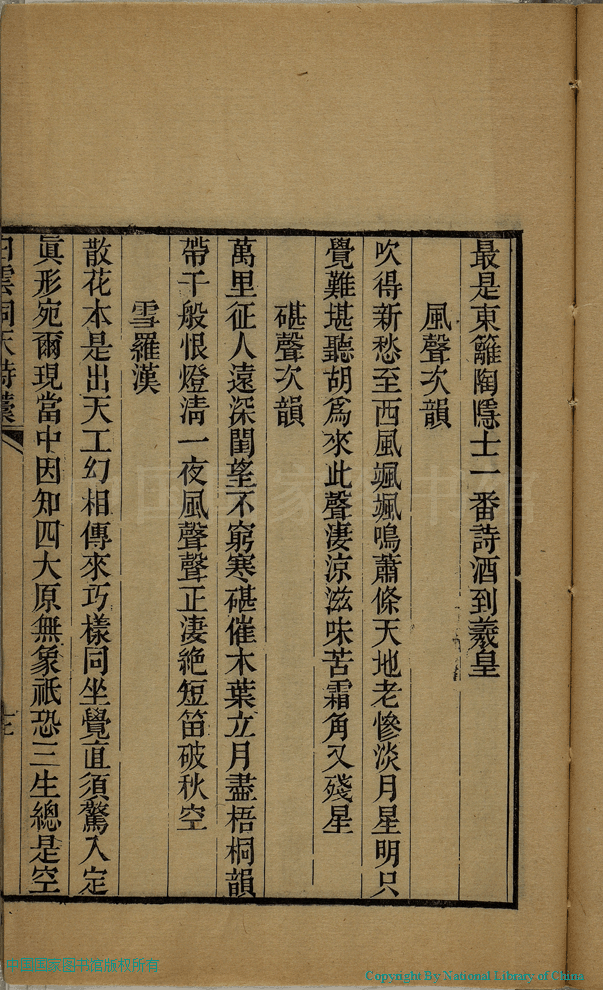 最是東籬陶隱士一番詩酒到羲皇
風聲次韻
吹得新愁至西風颯颯鳴蕭條天地老慘淡月星明只
覺難堪聽胡爲來此聲淒涼滋味苦霜角又殘星
碪聲次韻
萬里征人遠深閨望不窮寒碪催木葉立月盡梧桐韻
帶千般恨燈淸一夜風聲聲正淒絶短笛破秋空
雪羅漢
散花本是出天工幻相傳來巧樣同坐覺直須驚入定
眞形宛爾現當中因知四大原無象祇恐三生總是空
白雲洞天詩藁
中国国家图书馆版权所有
Copyright By National Library of China